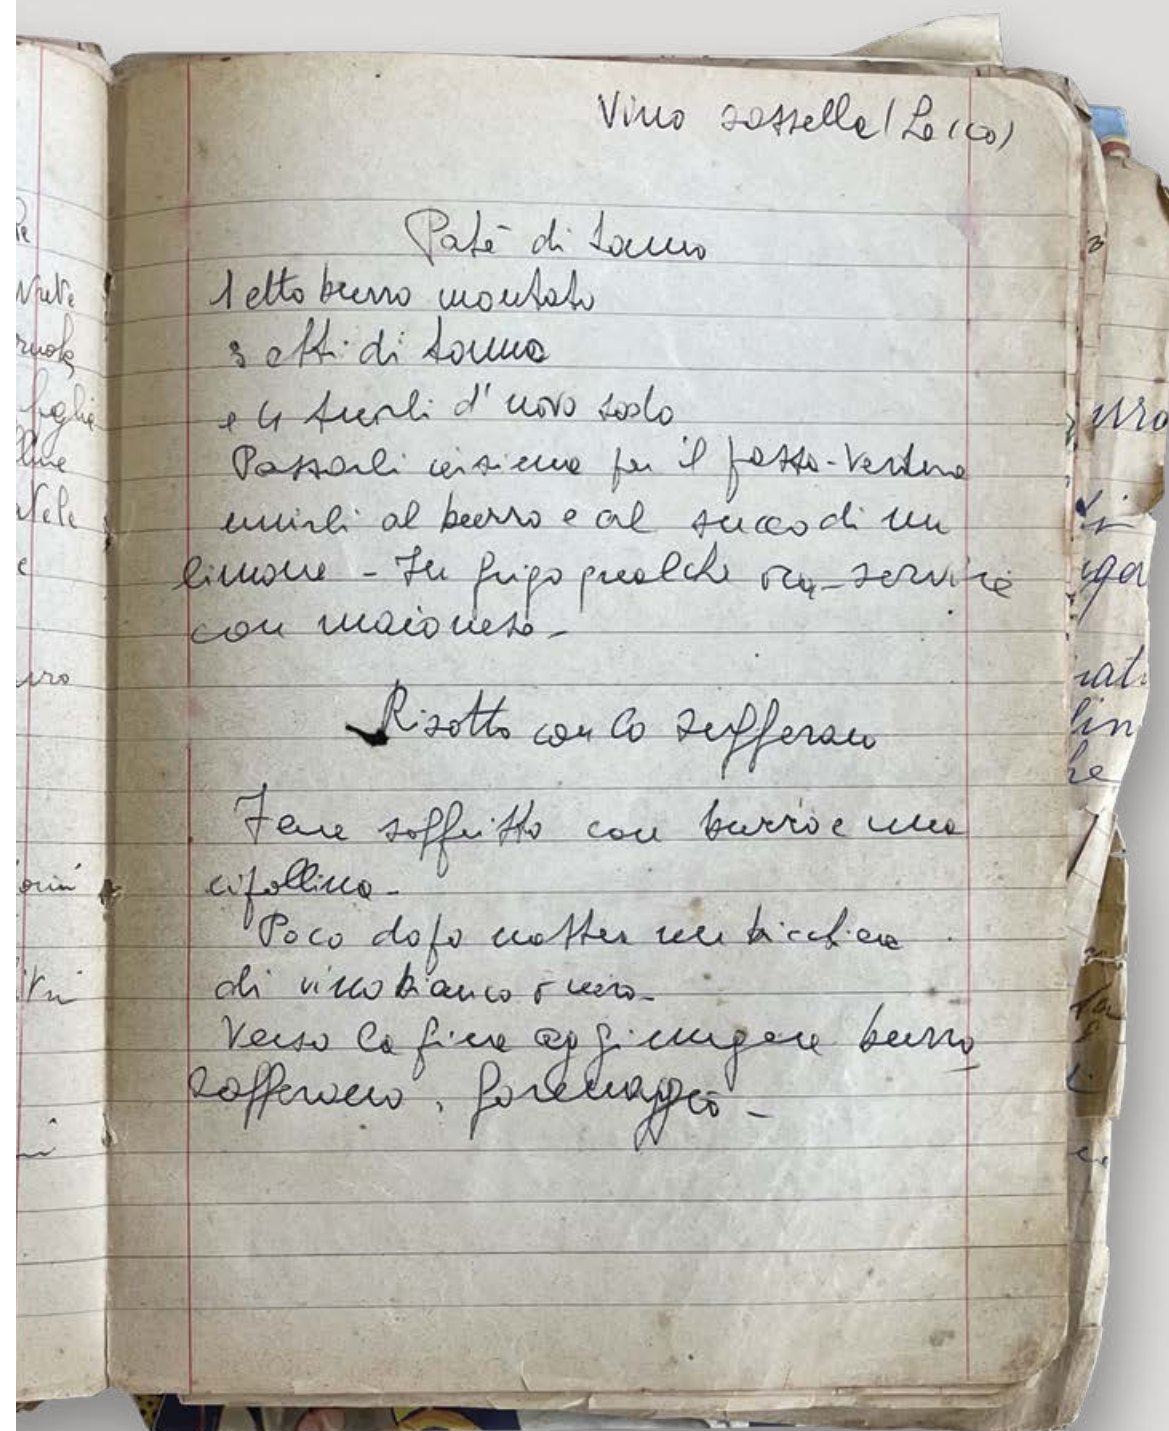 Vino sassella (Lecco)
Patè di tonno
1 etto burro montato
3 etti di tonno
e 4 tuorli d'uovo sodo
Passarli insieme per il passa-verdura
unirli al burro e al succo di un
limone - In frigo qualche ora - servire
con maionese -
Risotto con lo zafferano
Fare soffritto con burro e una
cipollina -
Poco dopo mettere un bicchiere
di vino bianco o nero -
Verso la fine aggiungere burro
zafferano, formaggio -